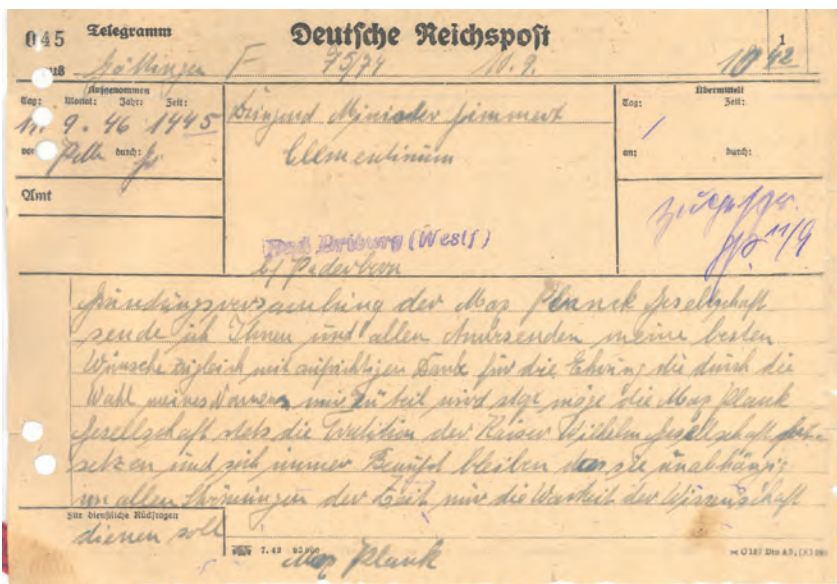 045 Telegramm Deutsche Reichspost 1
aus Göttingen F 75/74 10.9. 1842
Aufgenommen Übermittelt
Tag: Monat: Jahr: Zeit: Tag: Zeit:
11. 9. 46 1445 Dringend Minister
von durch: Clementinum an: durch:
Amt
11/9
Bad Driburg (Westf)
b/ Paderborn
Gründungsversamlung der Max Planck Gesellschaft
sende ich Ihnen und allen Anwesenden meine besten
Wünsche zugleich mit aufrichtigen Dank für die Ehrung die durch die
Wahl meines Namens mir zu teil wird stgt möge die Max Plank
Gesellschaft stets die Tratition der Kaiser Wilhelm Gesellschaft fort-
setzen und sich immer Bewußt bleiben das sie unabhängig
von allen Strömungen der Zeit nur die Warheit der Wissenschaft
Für dienstliche Rückfragen
dienen soll
Max Plank
7.43
C 187 Din A 5